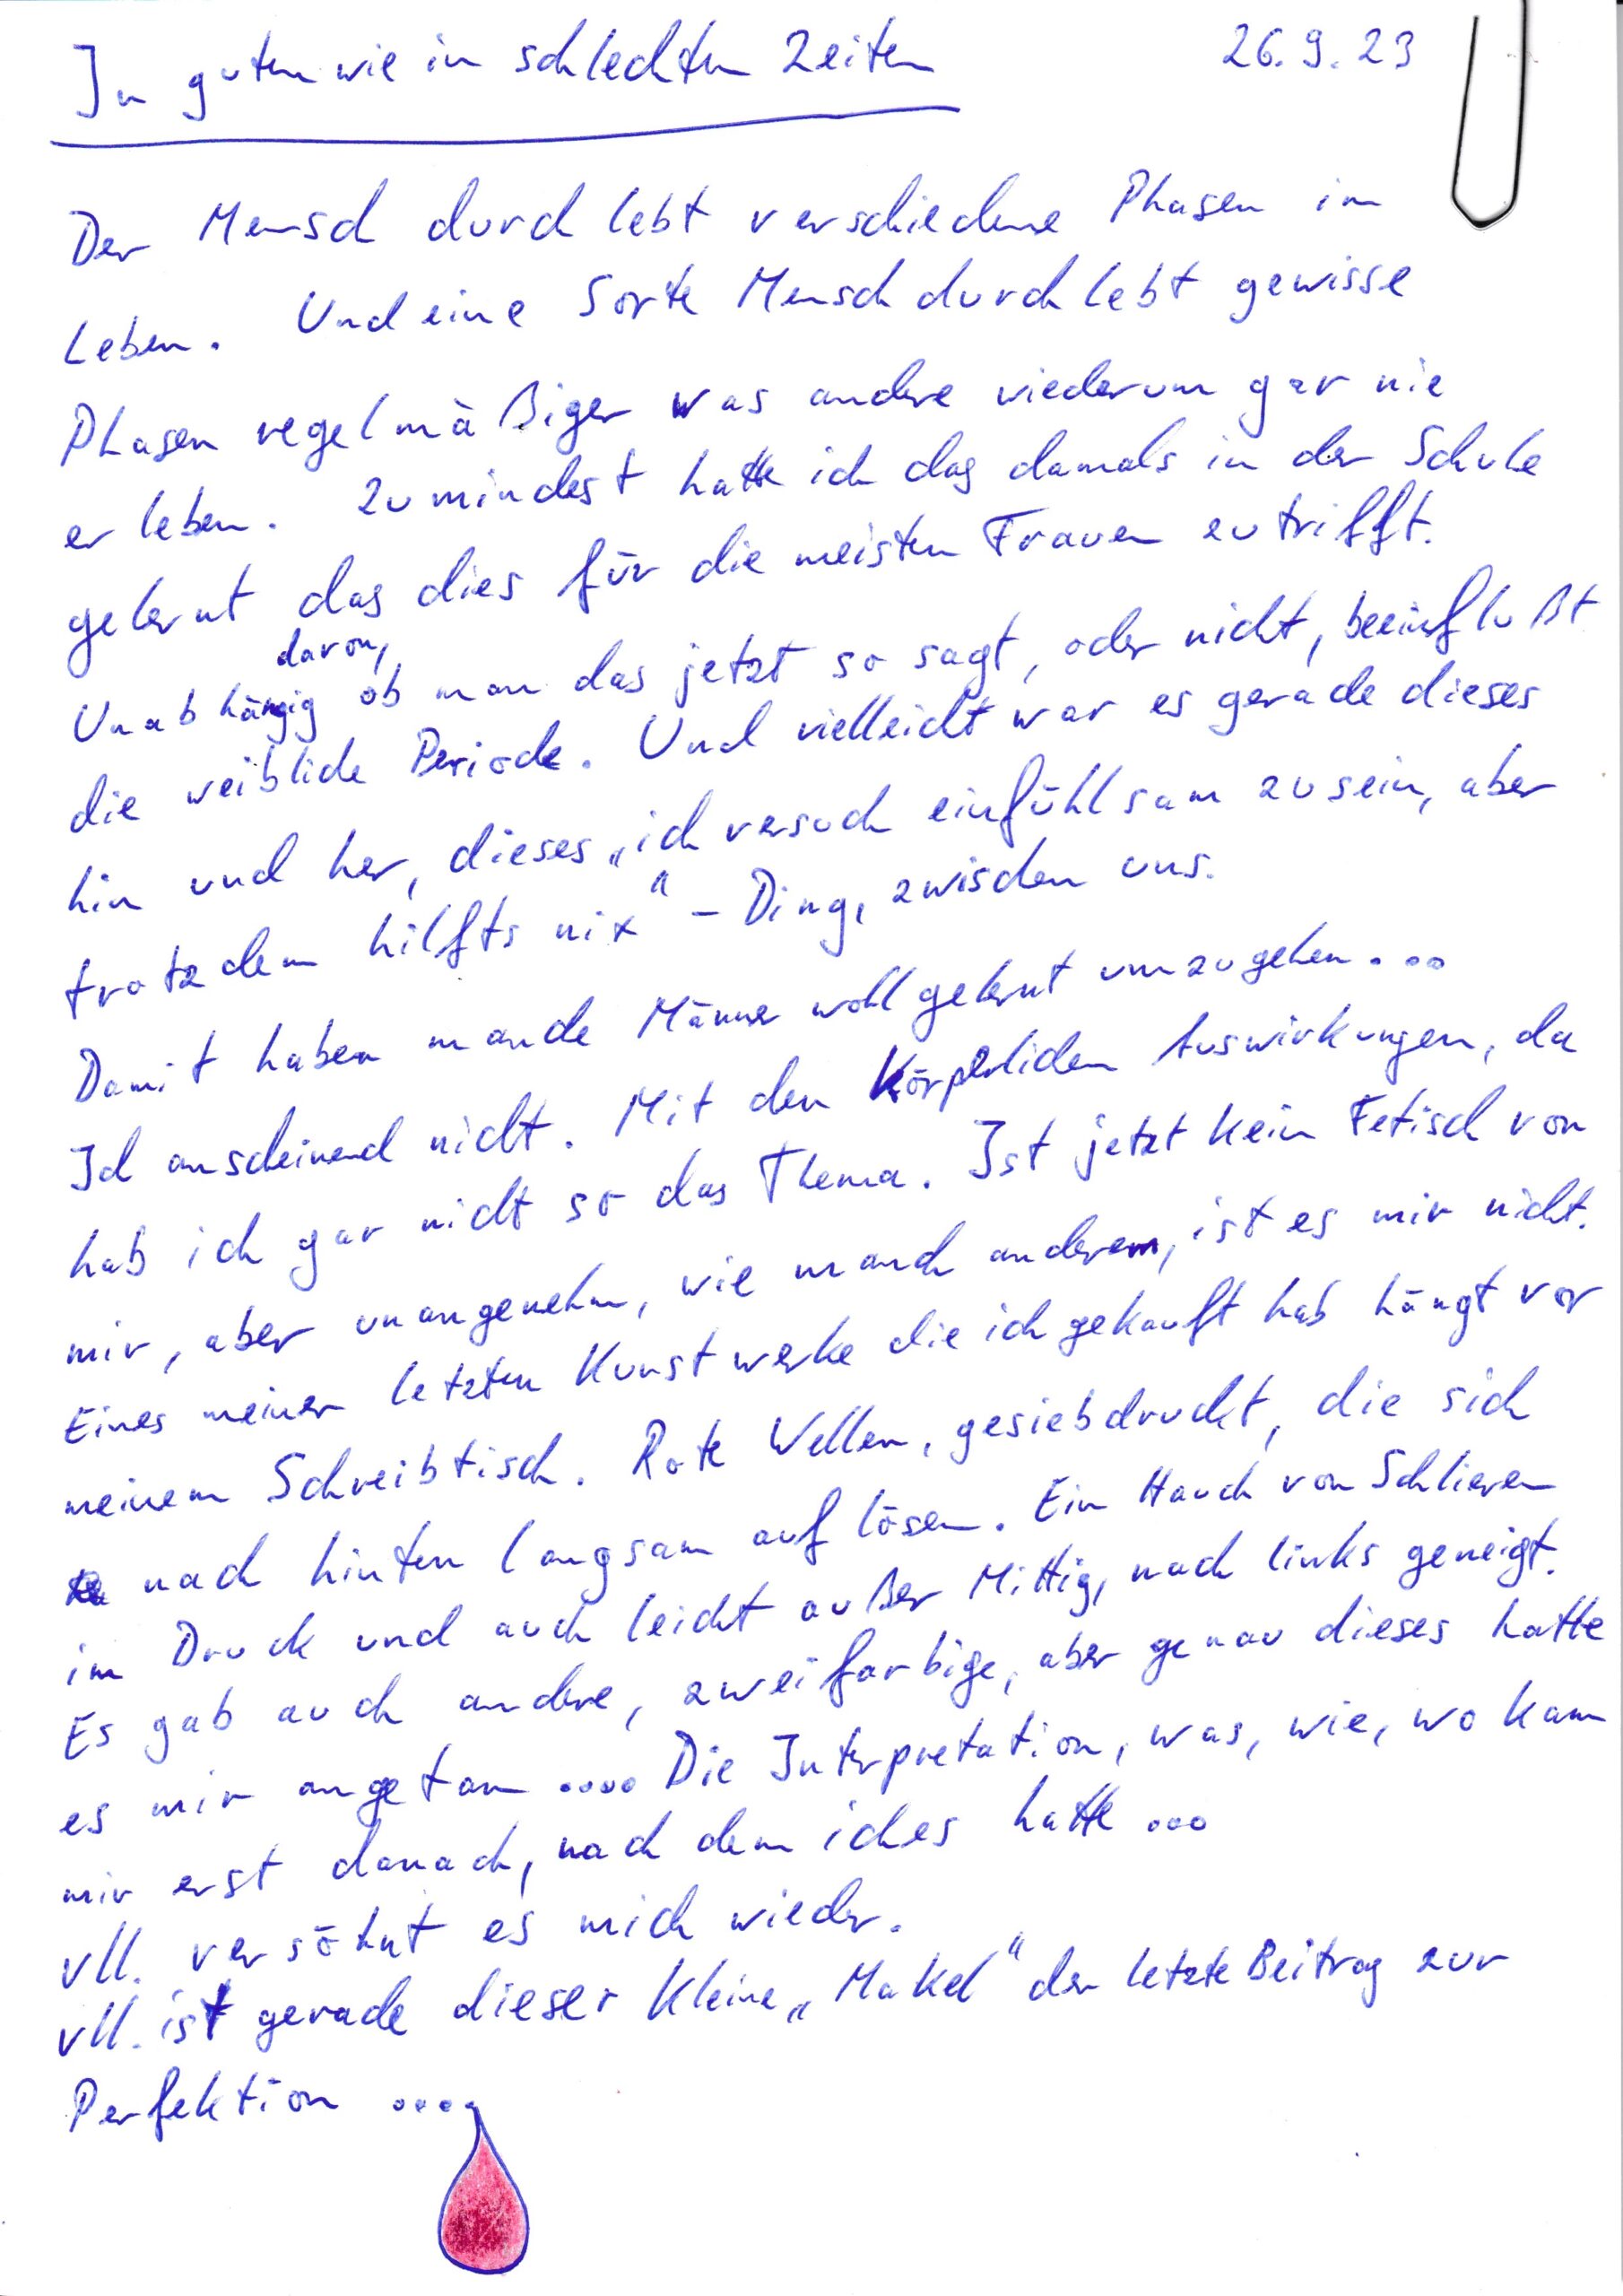 In guten wie in schlechten Zeiten
26.9.23
Der Mensch durchlebt verschiedene Phasen im
Leben. Und eine Sorte Mensch durchlebt gewisse
Phasen regelmäßiger was andere wiederum gar nie
erleben. Zumindest hatte ich das damals in der Schule
gelernt das dies für die meisten Frauen zutrifft.
davon,
Unabhängig ob man das jetzt so sagt, oder nicht, beeinflußt
die weibliche Periode. Und vielleicht war es gerade dieses
hin und her, dieses „ich versuch einfühlsam zu sein, aber
trotzdem hilfts nix" - Ding, zwischen uns.
Damit haben manche Männer wohl gelernt umzugehen...
Ich anscheinend nicht. Mit den Körperlichen Auswirkungen, da
hab ich gar nicht so das Thema. Ist jetzt kein Fetisch von
mir, aber unangenehm, wie manch anderem, ist es mir nicht.
Eines meiner letzten Kunstwerke die ich gekauft hab hängt vor
meinem Schreibtisch. Rote Wellen, gesiebdruckt, die sich
nach hinten langsam auflösen. Ein Hauch von Schlieren
im Druck und auch leicht außer Mittig, nach links geneigt.
Es gab auch andere, zweifarbige, aber genau dieses hatte
es mir angetan .... Die Interpretation, was, wie, wo kam
mir erst danach, nach dem ich es hatte ...
vll. versöhnt es mich wieder.
vll. ist gerade dieser kleine „Makel" der letzte Beitrag zur
Perfektion ....